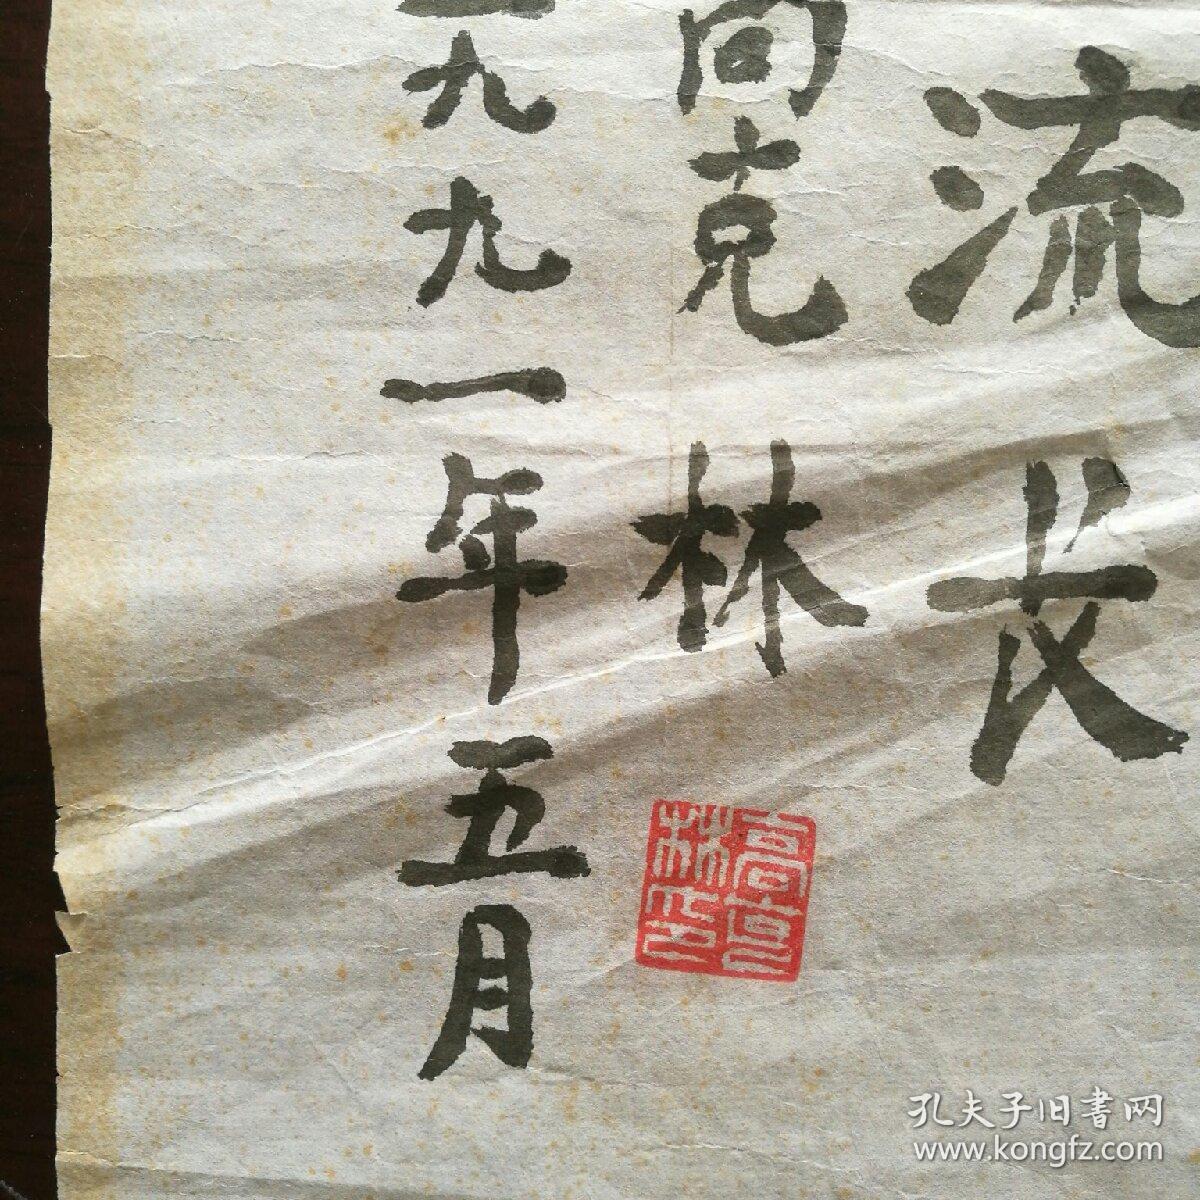 流长
高克林
一九九一年五月
高克林印
孔夫子旧書网
www.kongfz.com